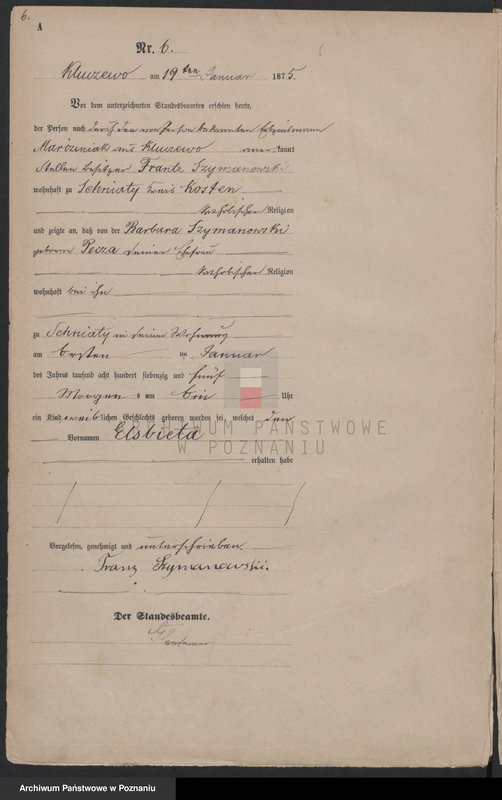 6.
A
Nr. 6.
Kluczewo am 19ten Januar 1875.
Vor dem unterzeichneten Standesbeamten erschien heute,
der Person nach durch den von Person bekannten
Marciniak aus Kluczewo kannt
Stellen besitzer Frantz Szymanowski
wohnhaft zu Sekniaty Kreis Kosten
katholischer Religion
und zeigte an, daß von der Barbara Szymanowski
geborene Pecza seiner Ehefrau
katholischer Religion
wohnhaft bei ihm
zu Sekniaty in seiner Wohnung
am ersten ten Januar
des Jahres tausend acht hundert siebenzig und fünf
Morgens um ein Uhr
ein Kind weiblichen Geschlechts geboren worden sei, welches den
Vornamen Elsbieta
ARCHIWUM PAŃSTWOWE
W POZNANIU
erhalten habe
Vorgelesen, genehmigt und unterschrieben.
Franz Szymanowski.
Der Standesbeamte.
Archiwum Państwowe w Poznaniu